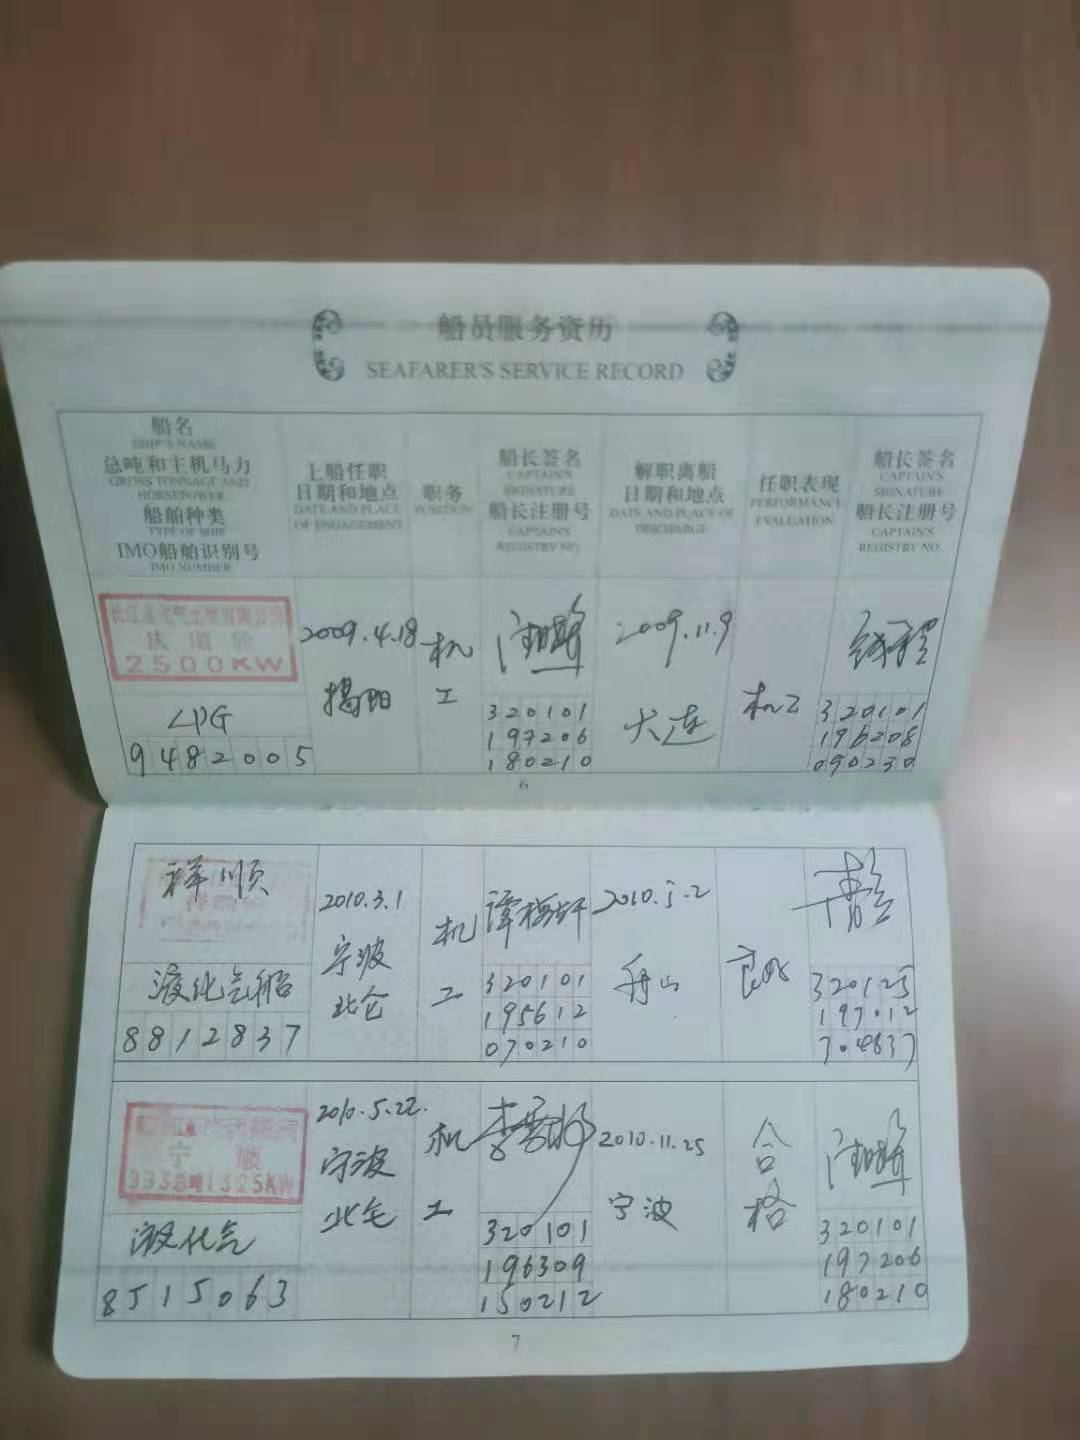 船员服务资历
SEAFARER'S SERVICE RECORD
船名
SHIP'S NAME
总吨和主机马力
GROSS TONNAGE AND
HORSEPOWER
船舶种类
TYPE OF SHIP
IMO船舶识别号
IMO NUMBER
上船任职
日期和地点
DATE AND PLACE
OF ENGAGEMENT
职务
POSITION
船长签名
CAPTAIN'S
SIGNATURE
船长注册号
CAPTAIN'S
REGISTRY NO.
解职离船
日期和地点
DATE AND PLACE OF
DISCHARGE
任职表现
PERFORMANCE
EVALUATION
船长签名
CAPTAIN'S
SIGNATURE
船长注册号
CAPTAIN'S
REGISTRY NO.
2500KW
LPG
9482005
2009.4.18
揭阳
机
工
320101
197206
180210
2009.11.9
大连
320101
196208
090230
6
祥顺
液化气船
8812837
2010.3.1
宁波
北仑
机
工
320101
195612
070210
2010.5.2
舟山
良好
320125
197012
304837
宁顺
液化气
8515063
2010.5.22.
宁波
北仑
机
工
320101
196309
150212
2010.11.25
宁波
合
格
320101
197206
180210
7